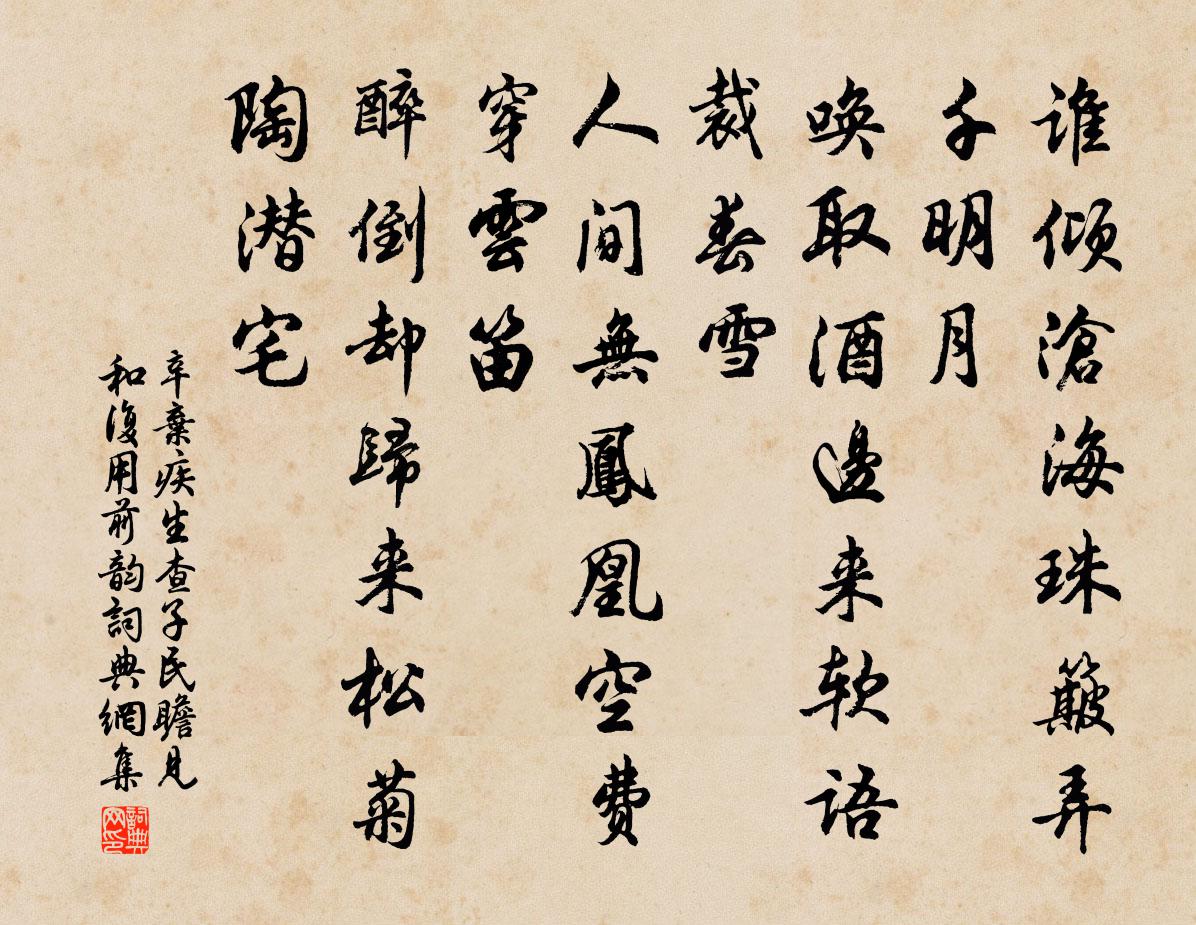 谁倾滄海珠簸弄
千明月
唤取酒邊来软语
裁春雪
人间無鳳凰空费
穿雲笛
醉倒却歸来松菊
陶潜宅
辛棄疾生查子民瞻見
和復用前韵詞典網集
詞典网印